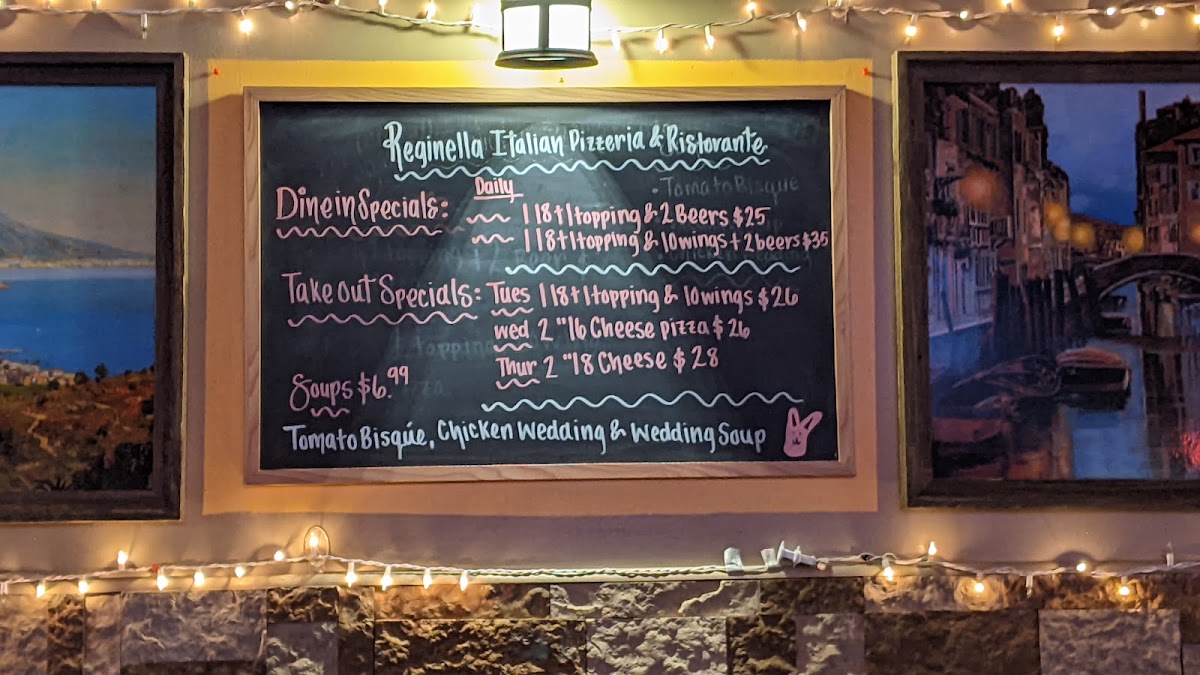 Reginella Italian Pizzeria & Ristorante
Daily
Dine in Specials: 1 18 + 1 topping & 2 Beers $25
1 18 + 1 topping & 10 wings + 2 beers $35
Take Out Specials: Tues 1 18 + 1 topping & 10 wings $26
wed 2 "16 Cheese pizza $26
Thur 2 "18 Cheese $28
Soups $6.99
Tomato Bisqúe, Chicken Wedding & Wedding Soup
Tomato Bisque